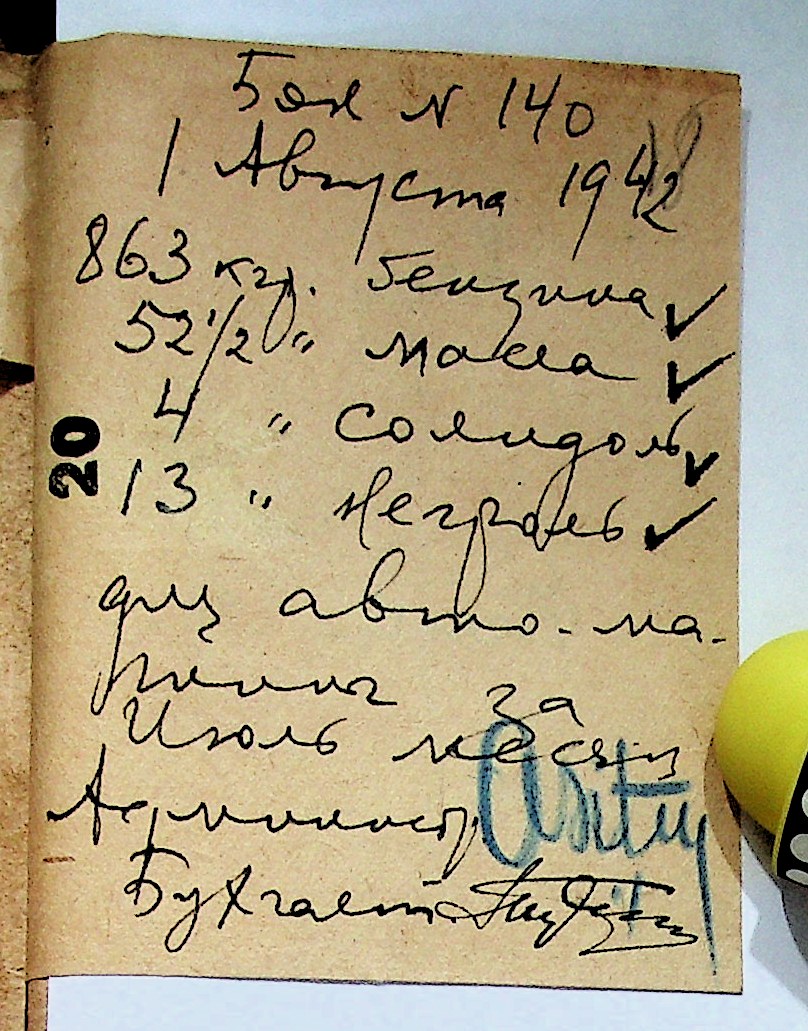 Бон N 140
1 Августа 1942
18
863 кгр. бензина ✓
52 1/2 " масла ✓
4 " солидоль ✓
20
13 " Негроль ✓
для авто-ма-
шины за
Июль месяц
Администр.
Бухгалт.